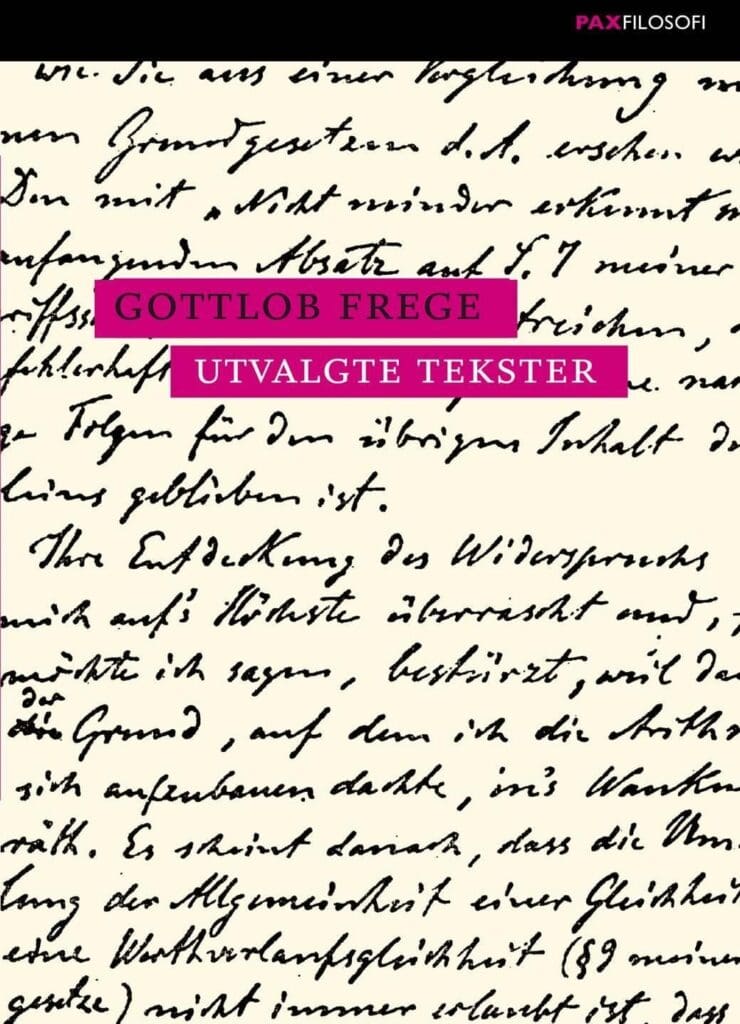 PAXFILOSOFI
wie Sie aus einer Vergleichung m
nen Grundgesetzen d. A. ersehen w
Den mit „Nicht minder erkennt m
anfangenden Absatz auf S. 7 meiner
riffss
GOTTLOB FREGE
treichen,
fehlerhaft
UTVALGTE TEKSTER
ge Folgen für den übrigen Inhalt de
leins geblieben ist.
Ihre Entdeckung des Widerspruchs
mich auf's Höchste überrascht und,
möchte ich sagen, bestürzt, weil da
der
Grund, auf dem ich die Arithm
sich aufzubauen dachte, in's Wanken
räth. Es scheint danach, dass die Um
lung der Allgemeinheit einer Gleichheit
eine Werthverlaufsgleichheit (§9 meiner
gesetze) nicht immer erlaubt ist, dass